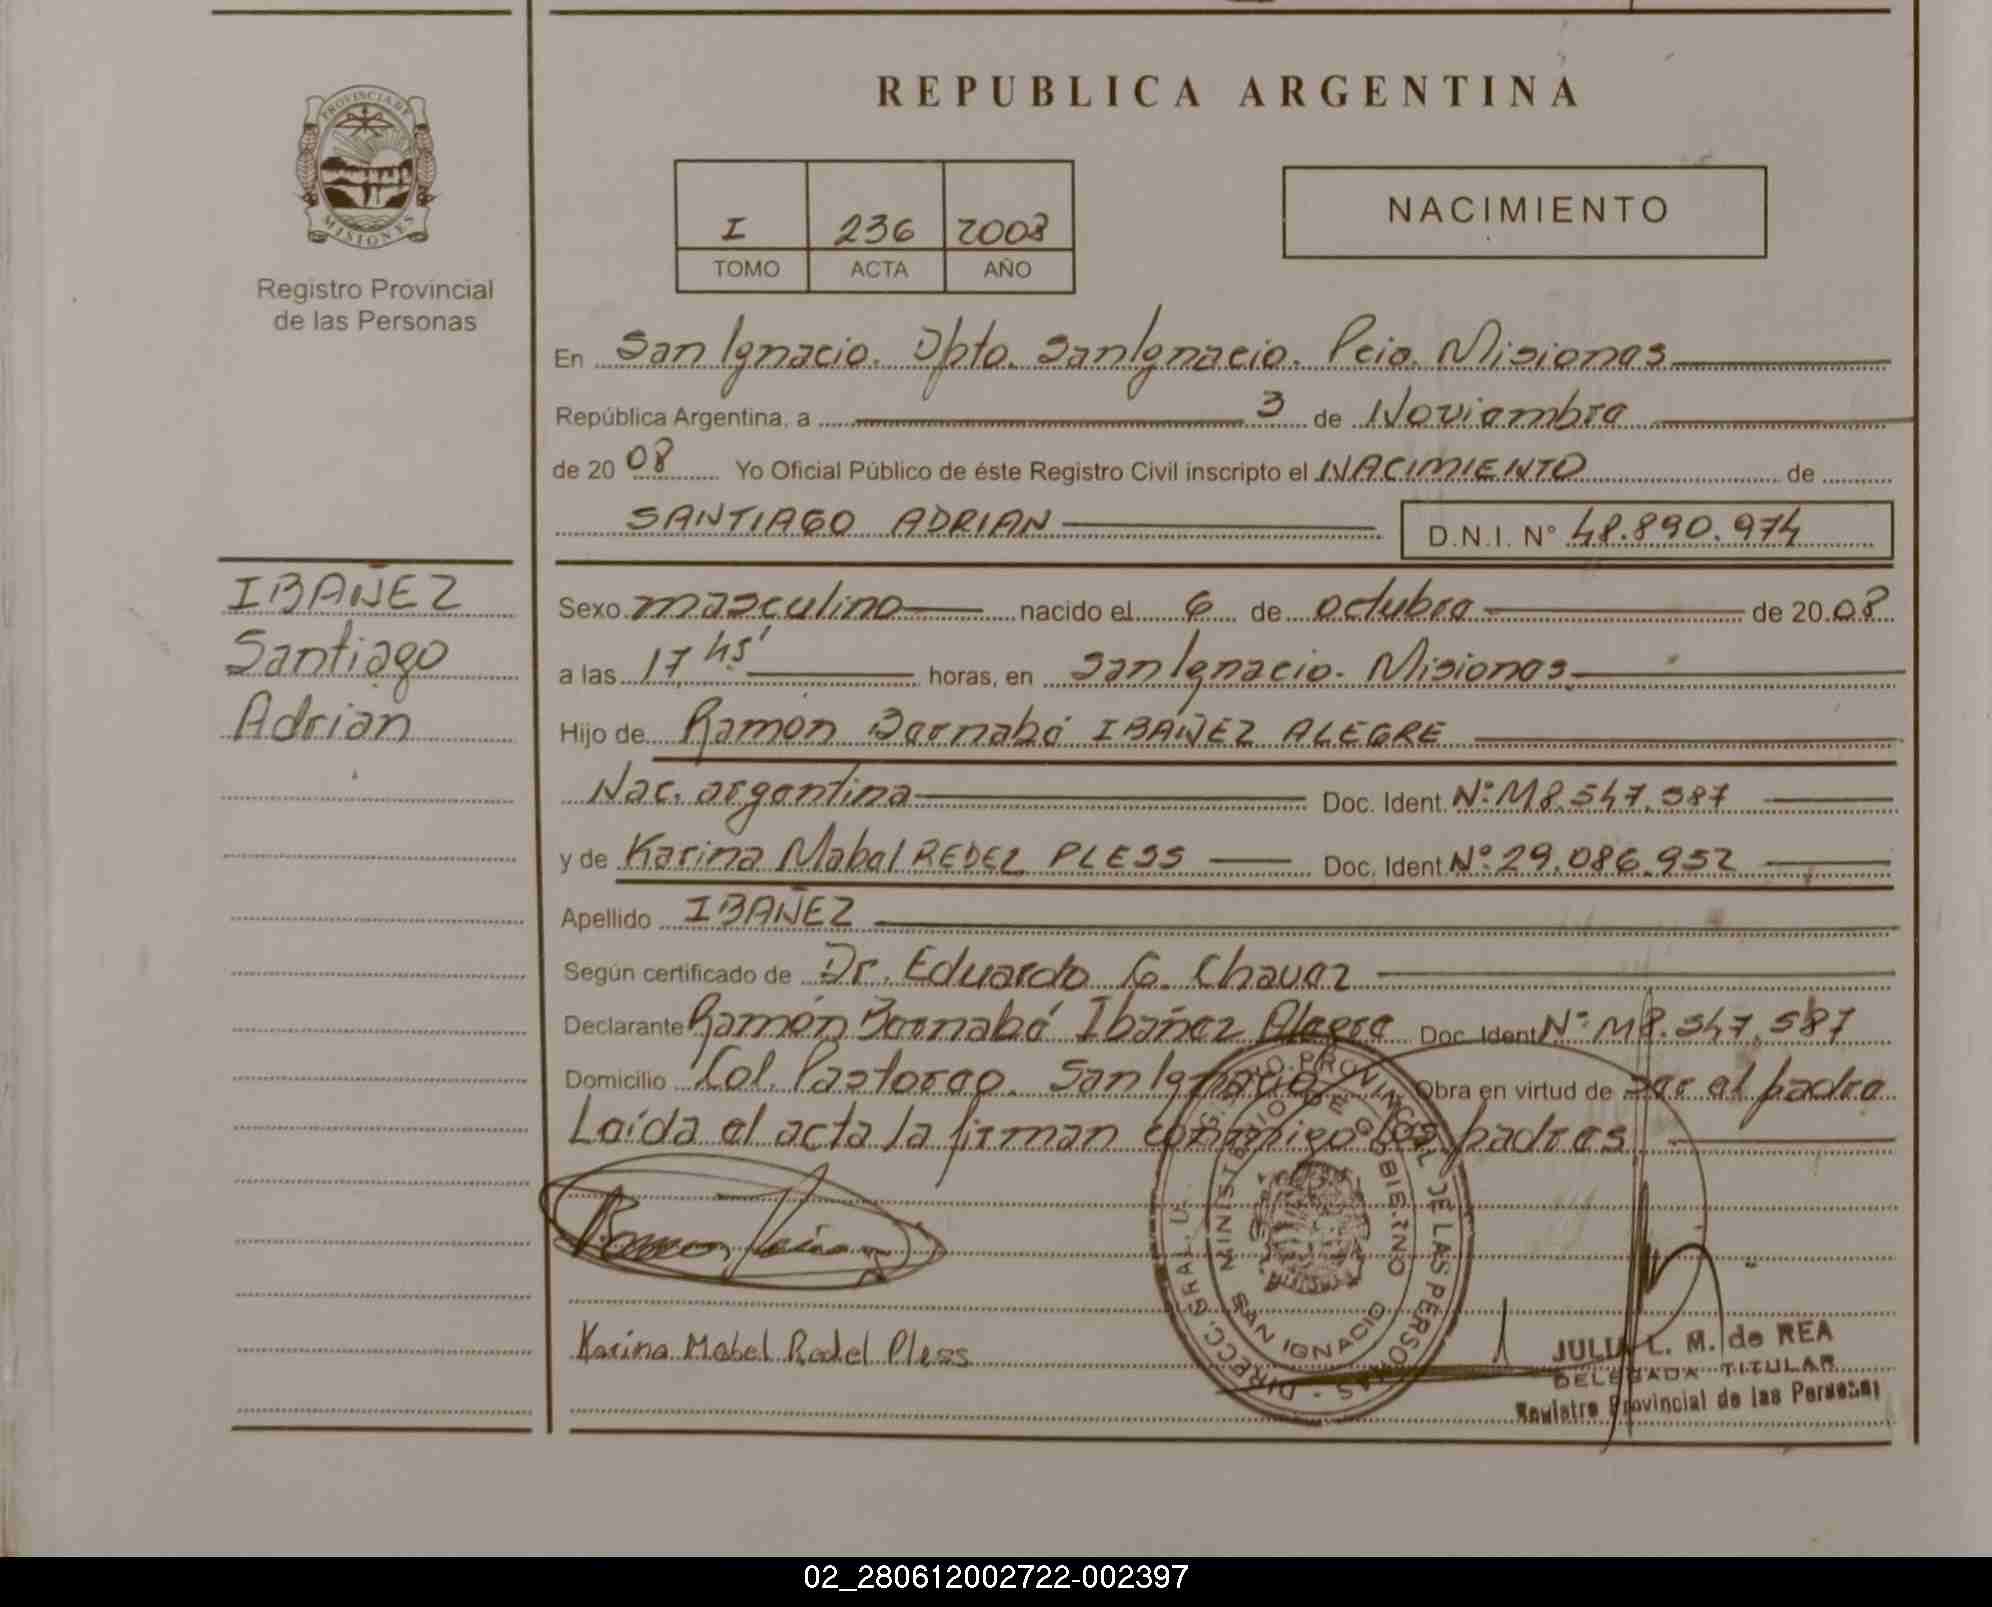 REPUBLICA ARGENTINA
PROVINCIA DE MISIONES
Registro Provincial
de las Personas
I 236 2008
TOMO ACTA AÑO
NACIMIENTO
En San Ignacio. Dpto. San Ignacio. Pcia. Misiones
República Argentina, a 3 de Noviembre
de 2008 Yo Oficial Público de éste Registro Civil inscripto el NACIMIENTO de
SANTIAGO ADRIAN D.N.I. Nº 48.890.974
IBAÑEZ
Santiago
Adrian
Sexo masculino nacido el 6 de octubre de 2008
a las 17 hs horas, en San Ignacio. Misiones
Hijo de Ramón Bernabé IBAÑEZ ALEGRE
Nac. argentina Doc. Ident. Nº M8.547.587
y de Karina Mabel REDEL PLESS Doc. Ident Nº 29.086.952
Apellido IBAÑEZ
Según certificado de Dr. Eduardo G. Chavez
Declarante Ramón Bernabé Ibañez Alegre Doc. Ident Nº M8.547.587
Domicilio Col. Pastoreo. San Ignacio Obra en virtud de ser el padre
Leída el acta la firman conmigo los padres
DIRECC. GRAL. DE LAS PERSONAS
MINISTERIO DE GOBIERNO
SAN IGNACIO
Karina Mabel Redel Pless
JULIA L. M. de REA
DELEGADA TITULAR
Registro Provincial de las Personas
02_280612002722-002397